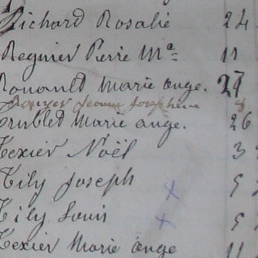 Richard Rosalie 24
Regnier Pierre Ma 11
Rouault Marie ange. 27
Josephine 8
Trublet Marie ange. 26
Texier Noël 3
Tily Joseph x 5
Tily Louis x 5
Texier Marie ange 11